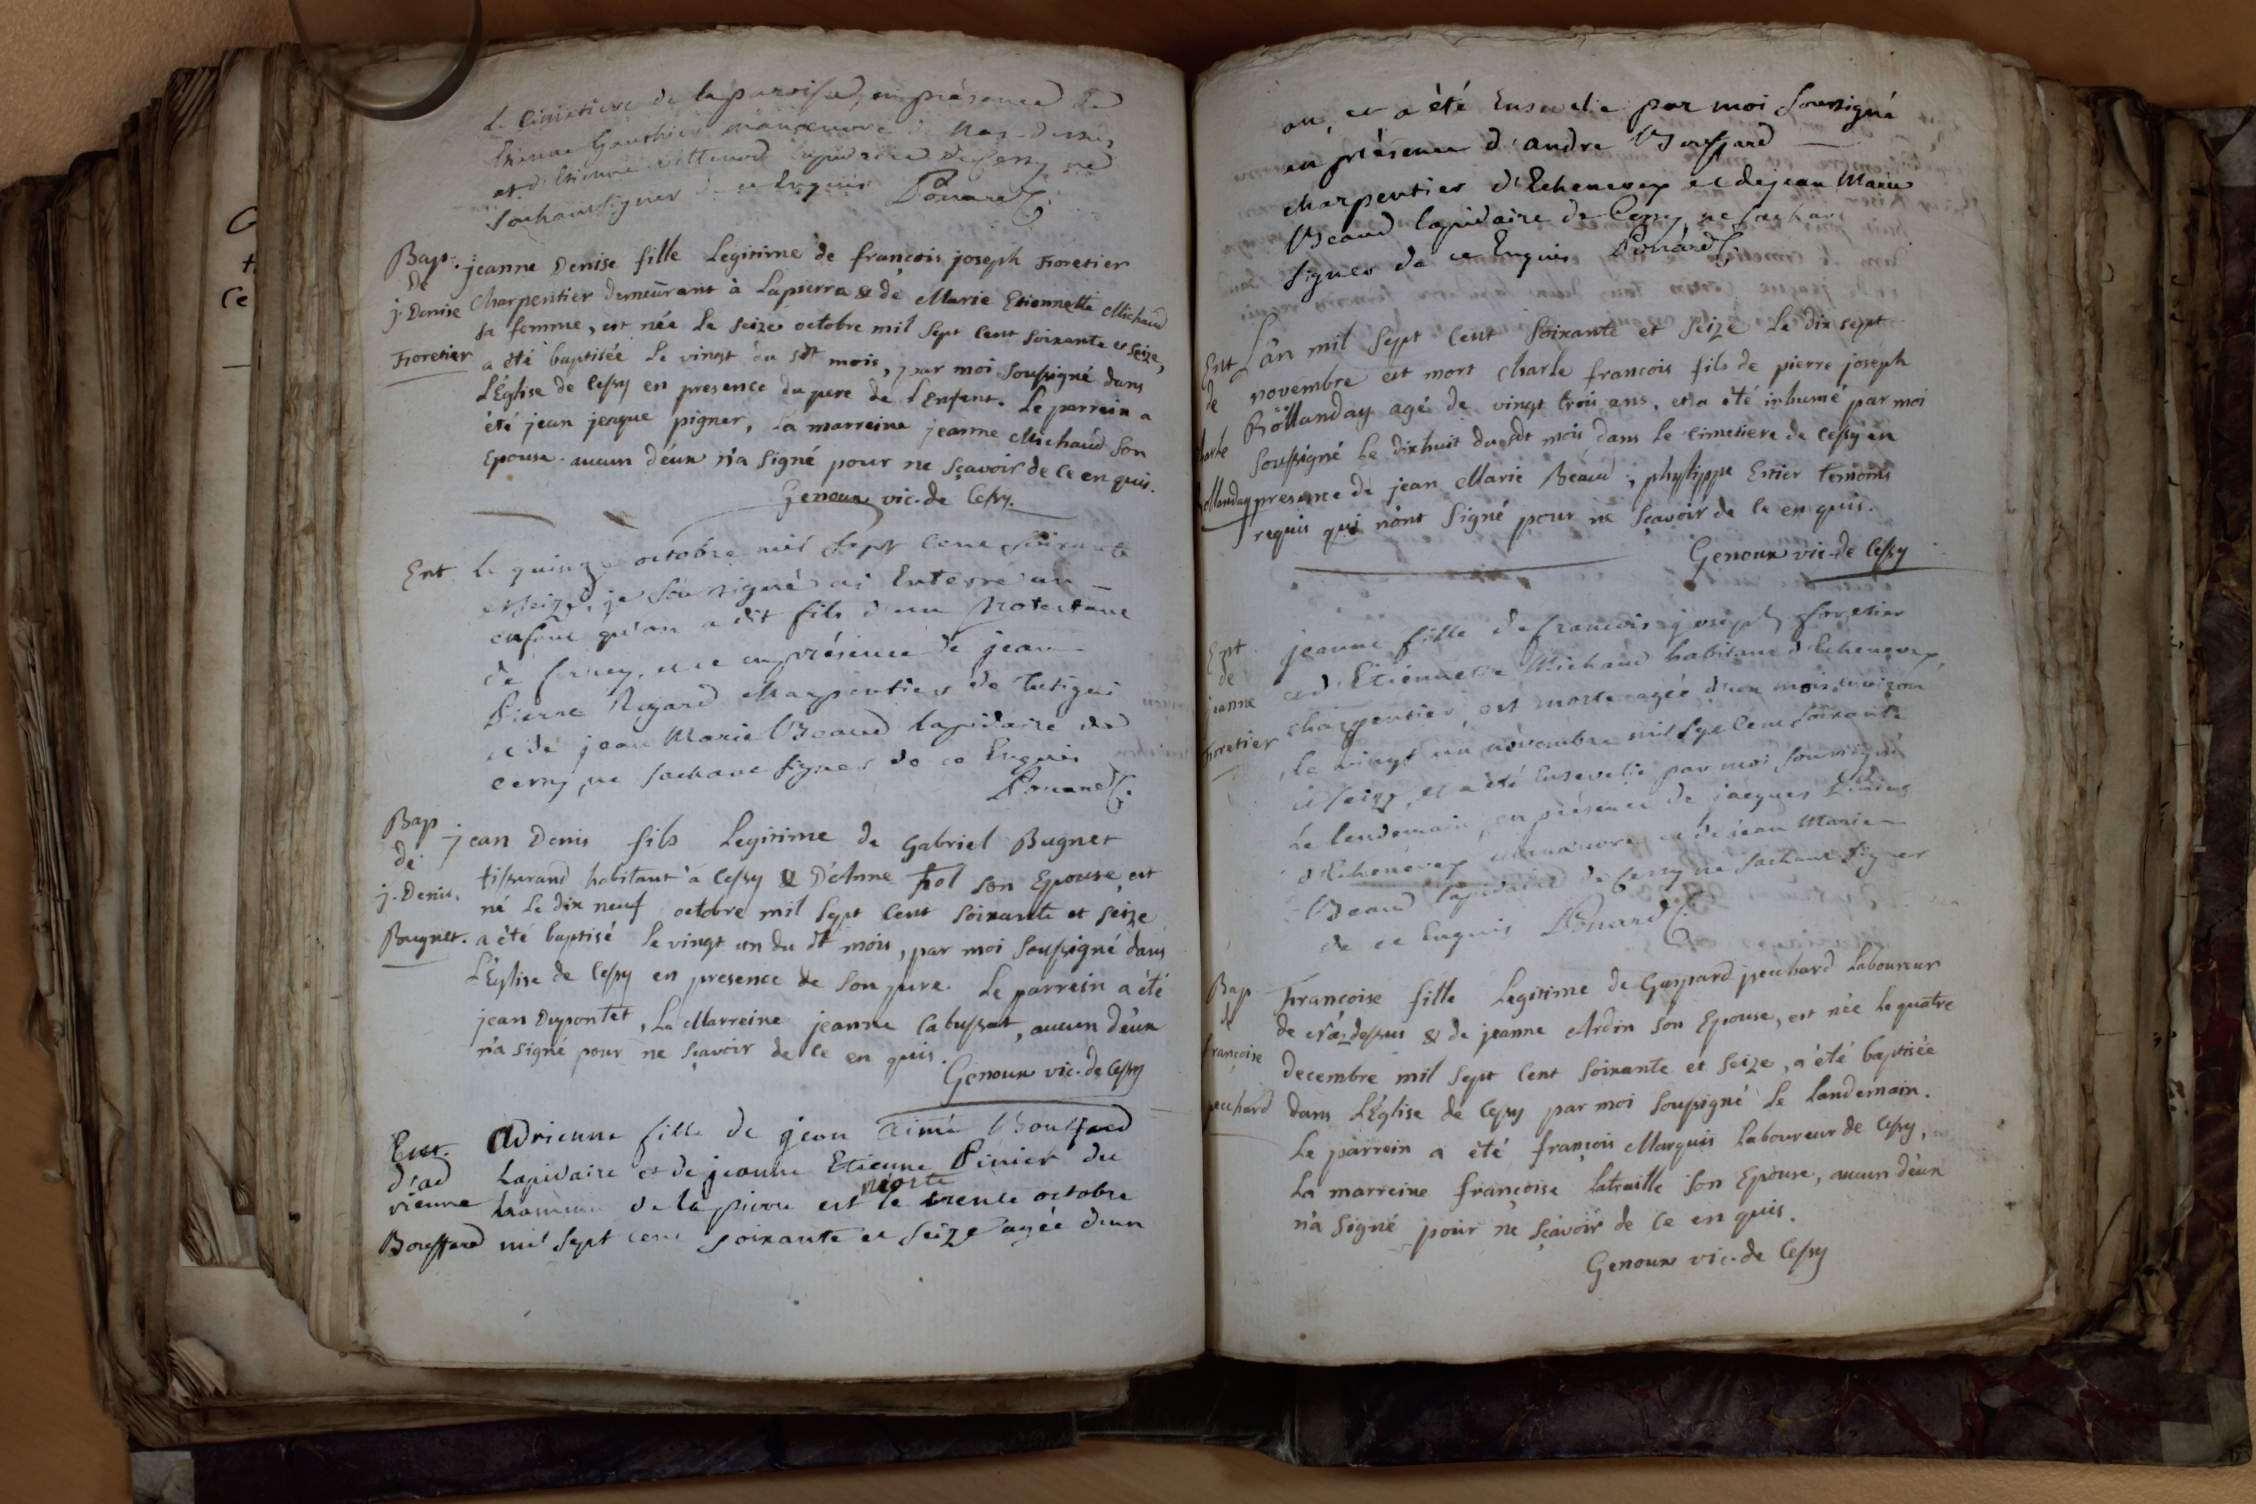 Le Cimetiere de la paroisse, en présence de
Etienne Gauthier manoeuvre de
et d'Etienne lapidaire de Cessy ne
Sachant signer de ce Enquis Ponard C.
Bap. de j. Denise Fioretier
jeanne Denise fille Legitime de françois joseph Fioretier
Charpentier demeurant à Lapierra & de Marie Etiennette Michaud
sa femme, est née le seize octobre mil sept cent soixante et seize,
a été baptisée le vingt du sdt mois, par moi soussigné dans
L'Eglise de Cessy en presence du pere de l'Enfant. Le parrein a
été jean jacque pigner, la marreine jeanne Michaud son
Epouse. aucun d'eux n'a signé pour ne sçavoir de ce en quis.
Genoux vic. de Cessy.
Ent
Le quinze octobre mil sept cent soixante
et seize, je soussigné ai Enterré un
enfant qu'on a dit fils d'un Protestant
de et ce en présence de jean
Pierre Regard charpentier de
et de jean Marie Beaud lapidaire de
Cessy, ne sachant signer de ce Enquis
Ponard C.
Bap de j. Denis. Bugnet.
jean Denis fils Legitime de Gabriel Bugnet
tisserand habitant à Cessy & D'Anne fiol son Epouse, est
né le dix neuf octobre mil sept cent soixante et seize
a été baptisé le vingt un du dt mois, par moi soussigné dans
L'Eglise de Cessy en presence de son pere. Le parrein a été
jean Dupontet, La Marreine jeanne Cabussat, aucun d'eux
n'a signé pour ne sçavoir de ce en quis.
Genoux vic. de Cessy
Ent. d'adrienne Bouffard
Adrienne fille de jean Aimé Bouffard
Lapidaire et de jeanne Etienne Pinier du
hameau de la pierre est morte le trente octobre
mil sept cent soixante et seize agée d'un
an, et a été Ensevelie par moi soussigné
en présence d'andré Bouffard
charpentier d'Echenevex et de jean Marie
Beaud lapidaire de Cessy ne sachant
signer de ce Enquis Ponard C.
Ent de charle Rollanday
L'an mil sept cent soixante et seize le dix sept
novembre est mort charle francois fils de pierre joseph
Rollanday agé de vingt trois ans, et a été inhumé par moi
soussigné le dixhuit du sdt mois dans le cimetiere de Cessy en
presence de jean Marie Beaud, phylippe Errier temoins
requis qui n'ont signé pour ne sçavoir de ce en quis.
Genoux vic. de Cessy
Ent de jeanne Fioretier
jeanne fille de francois joseph fioretier
et d'Etiennette Michaud habitant d'Echenevex,
charpentier, est morte agée d'un mois environ
le vingt un novembre mil sept cent soixante
et seize, et a été Ensevelie par moi soussigné
Le lendemain, en présence de jacques
d'Echenevex manoeuvre, et de jean Marie
Beaud lapidaire de Cessy ne sachant signer
de ce Enquis Ponard C.
Bap de françoise pecchard
Françoise fille Legitime de Gaspard pecchard Laboureur
de dessus & de jeanne Ardin son Epouse, est née le quatre
decembre mil sept cent soixante et seize, a été baptisée
dans L'Eglise de Cessy par moi soussigné le landemain.
Le parrein a été françois Marquis Laboureur de Cessy,
La marreine françoise latraille son Epouse, aucun d'eux
n'a signé pour ne sçavoir de ce en quis.
Genoux vic. de Cessy